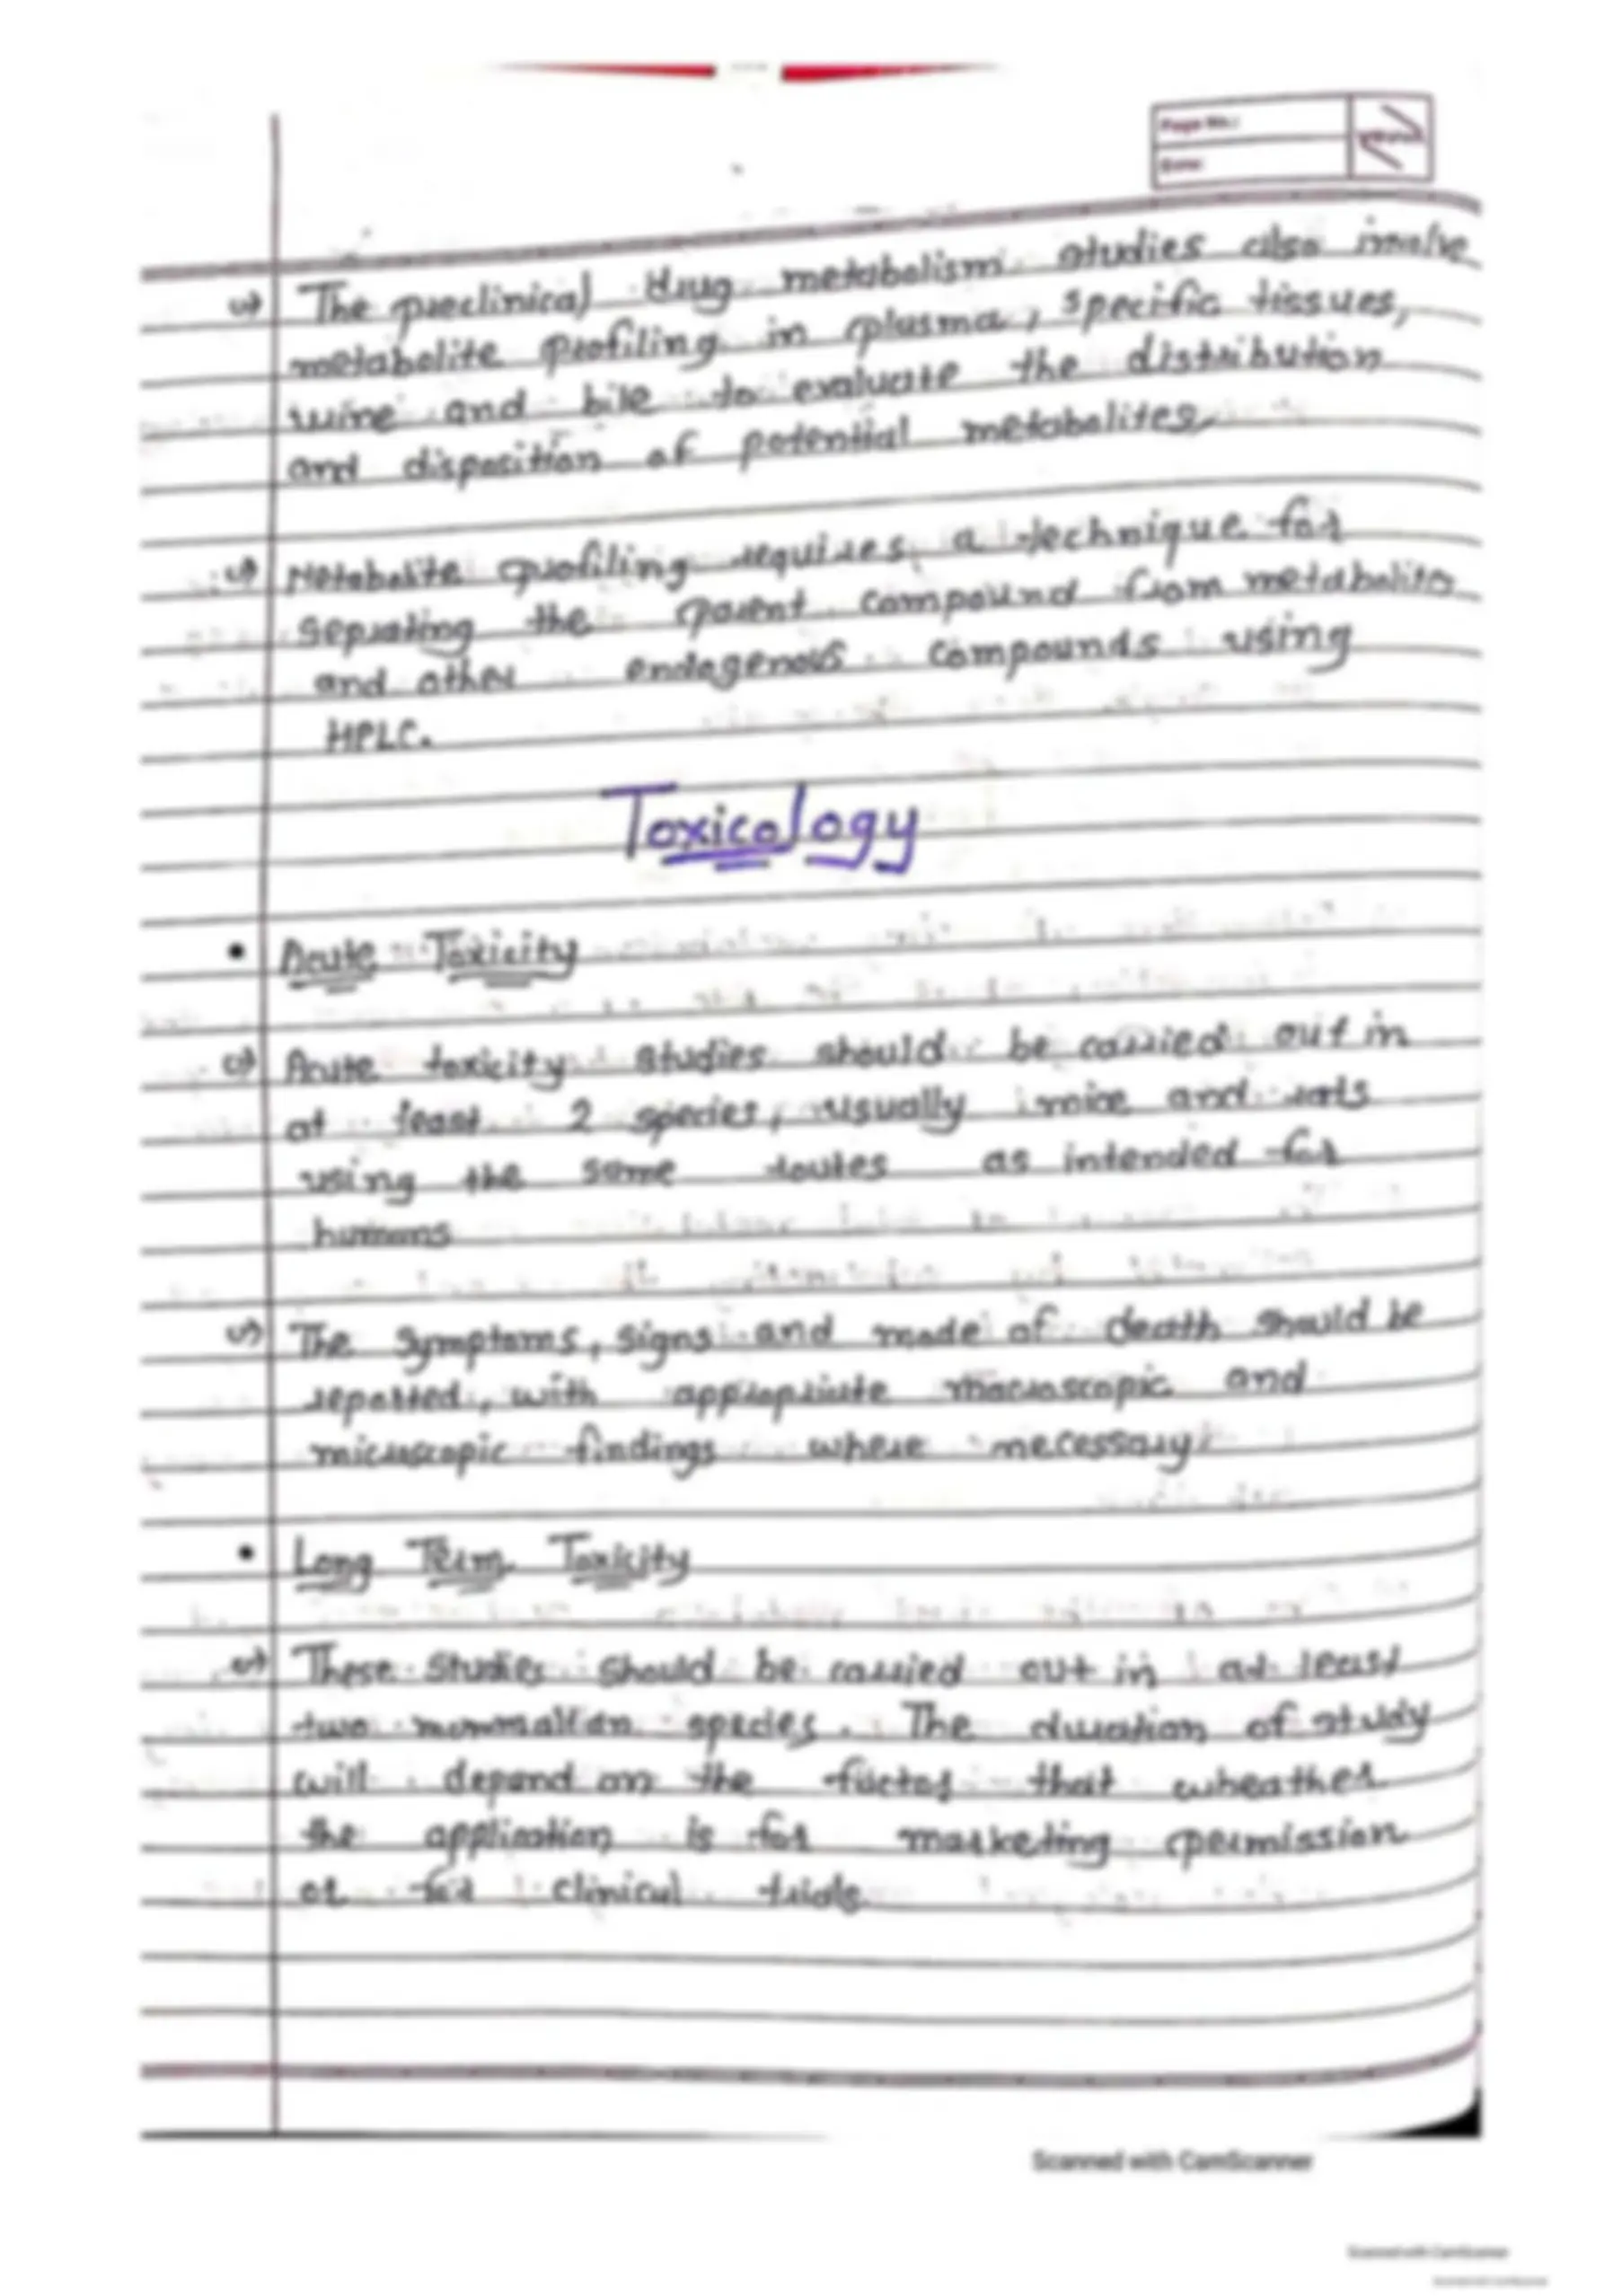 Page No.:
Date:
The preclinical drug metabolism studies also involve
metabolite profiling in plasma, specific tissues,
urine and bile to evaluate the distribution
and disposition of potential metabolites
Metabolite profiling requires a technique for
seprating the parent compound from metabolits
and other endogenous compounds using
HPLC.
Toxicology
• Acute Toxicity
Acute toxicity studies should be carried out in
at least 2 species, usually mice and rats
using the same routes as intended for
humans
The symptoms, signs and mode of death should be
reported, with appropriate macroscopic and
microscopic findings where necessary
• Long Term Toxicity
These studies should be carried out in at least
two mammalian species. The duration of study
will depend on the factor that wheather
the application is for marketing permission
or for clinical trials.
Scanned with CamScanner
Scanned with CamScanner